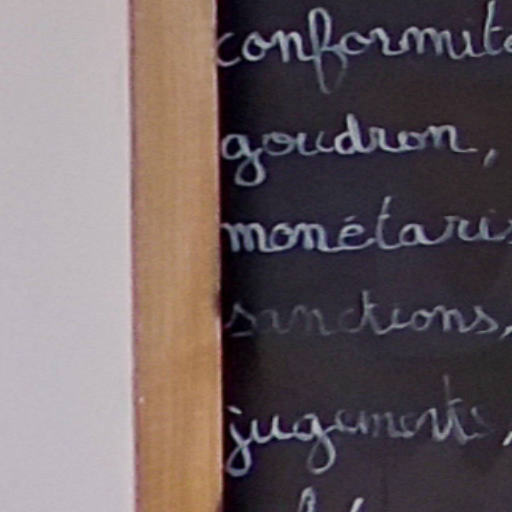 conformité
goudron,
monétaris
sanctions,
jugements,